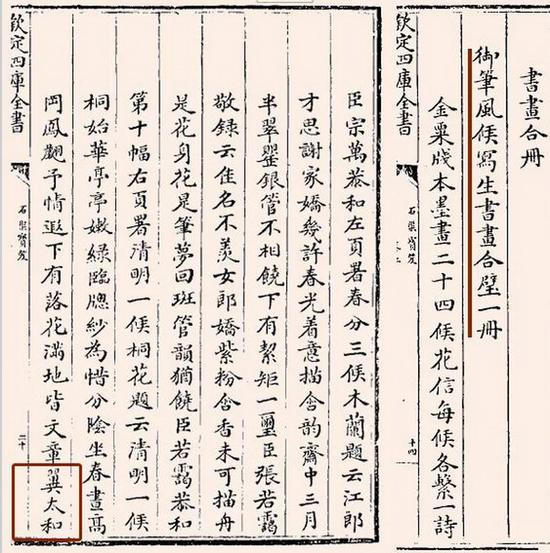 書畫合冊
御筆風候寫生書畫合璧一冊
金粟牋本墨畫二十四候花信每候各繫一詩
欽定四庫全書
石渠寶笈
十四
臣宗萬恭和左頁署春分三候木蘭題云江郎
才思謝家嬌幾許春光着意描含韵齋中三月
半翠罌銀管不相饒下有絜矩一璽臣張若靄
敬録云佳名不羨女郎嬌紫粉含香未可描舟
是花身花是筆夢回班管韻猶饒臣若靄恭和
第十幅右頁署清明一候桐花題云清明一候
桐始華亭亭嫩緑臨牕紗為惜分陰坐春晝高
岡鳳翽予情遐下有落花滿地皆文章巽太和
欽定四庫全書
石渠寶笈